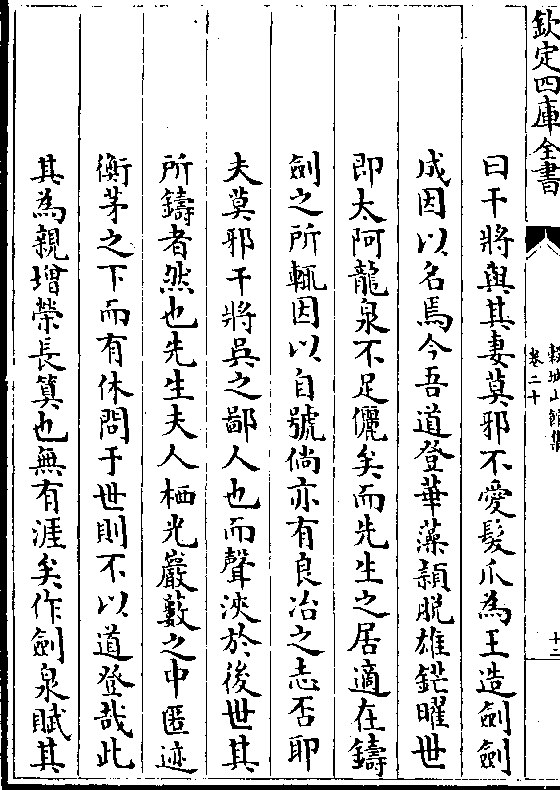 欽定四庫全書
穀城山館集
卷二十
十二
曰干將與其妻莫邪不愛髮爪為王造劍劍
成因以名焉今吾道登華藻穎脫雄鋩曜世
即太阿龍泉不足儷矣而先生之居適在鑄
劍之所輒因以自號倘亦有良冶之志否耶
夫莫邪干將吳之鄙人也而聲浹於後世其
所鑄者然也先生夫人栖光巖藪之中匿迹
衡茅之下而有休問于世則不以道登哉此
其為親增榮長算也無有涯矣作劍泉賦其